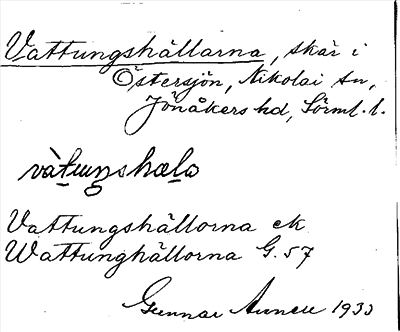 Vattungshällarna, skär i
Östersjön, Nikolai sn,
Jönåkers hd, Sörml. l.
vàt̲uŋshæl̲a
Vattungshällorna ek
Wattunghällorna G. 57
Gunnar 1933